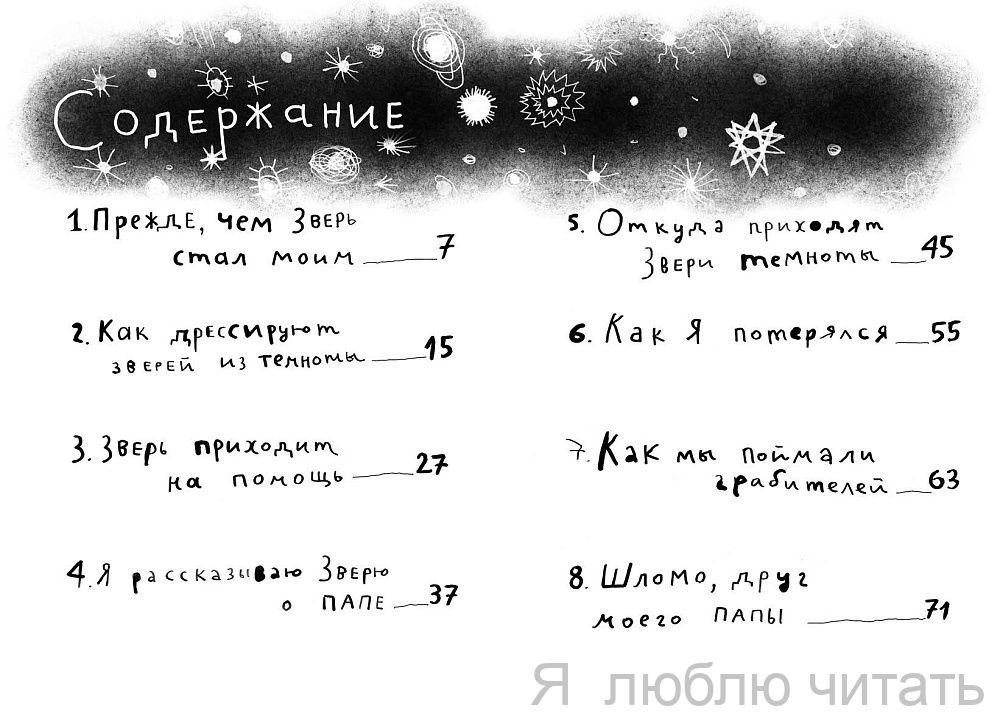 Содержание
1. Прежде, чем Зверь
стал моим 7
2. Как дрессируют
зверей из темноты 15
3. Зверь приходит
на помощь 27
4. Я рассказываю Зверю
о ПАПЕ 37
5. Откуда приходят
Звери темноты 45
6. Как Я потерялся 55
7. Как мы поймали
грабителей 63
8. Шломо, друг
моего ПАПЫ 71
Я люблю читать